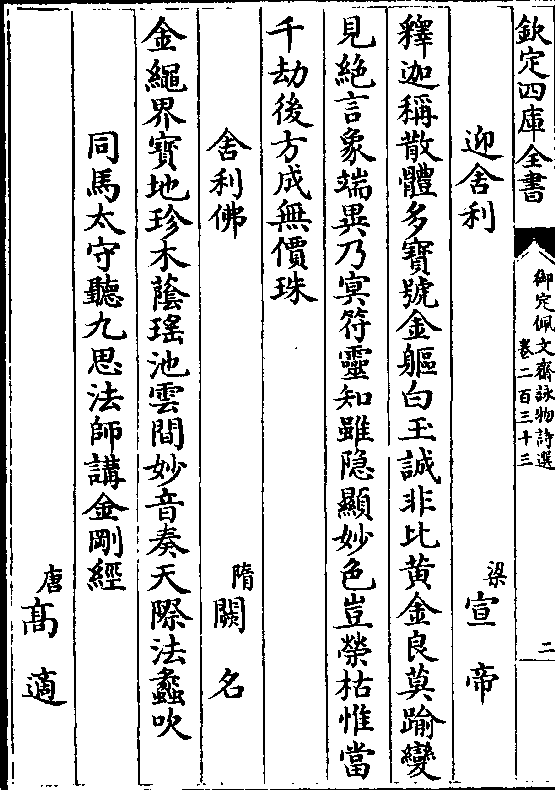 欽定四庫全書
御定佩文齋詠物詩選
卷二百三十三
二
迎舍利
梁
宣帝
釋迦稱散體多寶號金軀白玉誠非比黃金良莫踰變
見絶言象端異乃㝠符靈知雖隐顯妙色豈榮枯惟當
千劫後方成無價珠
舍利佛
隋
闕名
金繩界寶地珍木蔭瑤池雲間妙音奏天際法蠡吹
同馬太守聽九思法師講金剛經
唐
髙適